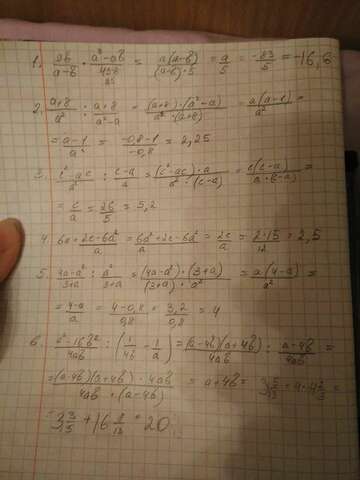 1. 9b/(a-b) · (a²-ab)/45b = a(a-b)/((a-b)·5) = a/5 = -83/5 = -16,6
2. (a+8)/a² : (a+8)/(a²-a) = (a+8)·(a²-a)/(a²·(a+8)) = a(a-1)/a² =
= (a-1)/a = (-0,8-1)/-0,8 = 2,25
3. (c²-ac)/a² : (c-a)/a = (c²-ac)·a/(a²·(c-a)) = c(c-a)/(a·(c-a)) =
= c/a = 26/5 = 5,2
4. 6a + (2c-6a²)/a = (6a²+2c-6a²)/a = 2c/a = 2·15/12 = 2,5
5. (4a-a²)/(3+a) : a²/(3+a) = (4a-a²)·(3+a)/((3+a)·a²) = a(4-a)/a² =
= (4-a)/a = (4-0,8)/0,8 = 3,2/0,8 = 4
6. (a²-16b²)/4ab : (1/4b - 1/a) = (a-4b)(a+4b)/4ab : (a-4b)/4ab =
= (a-4b)(a+4b)·4ab/(4ab·(a-4b)) = a+4b =
= 20